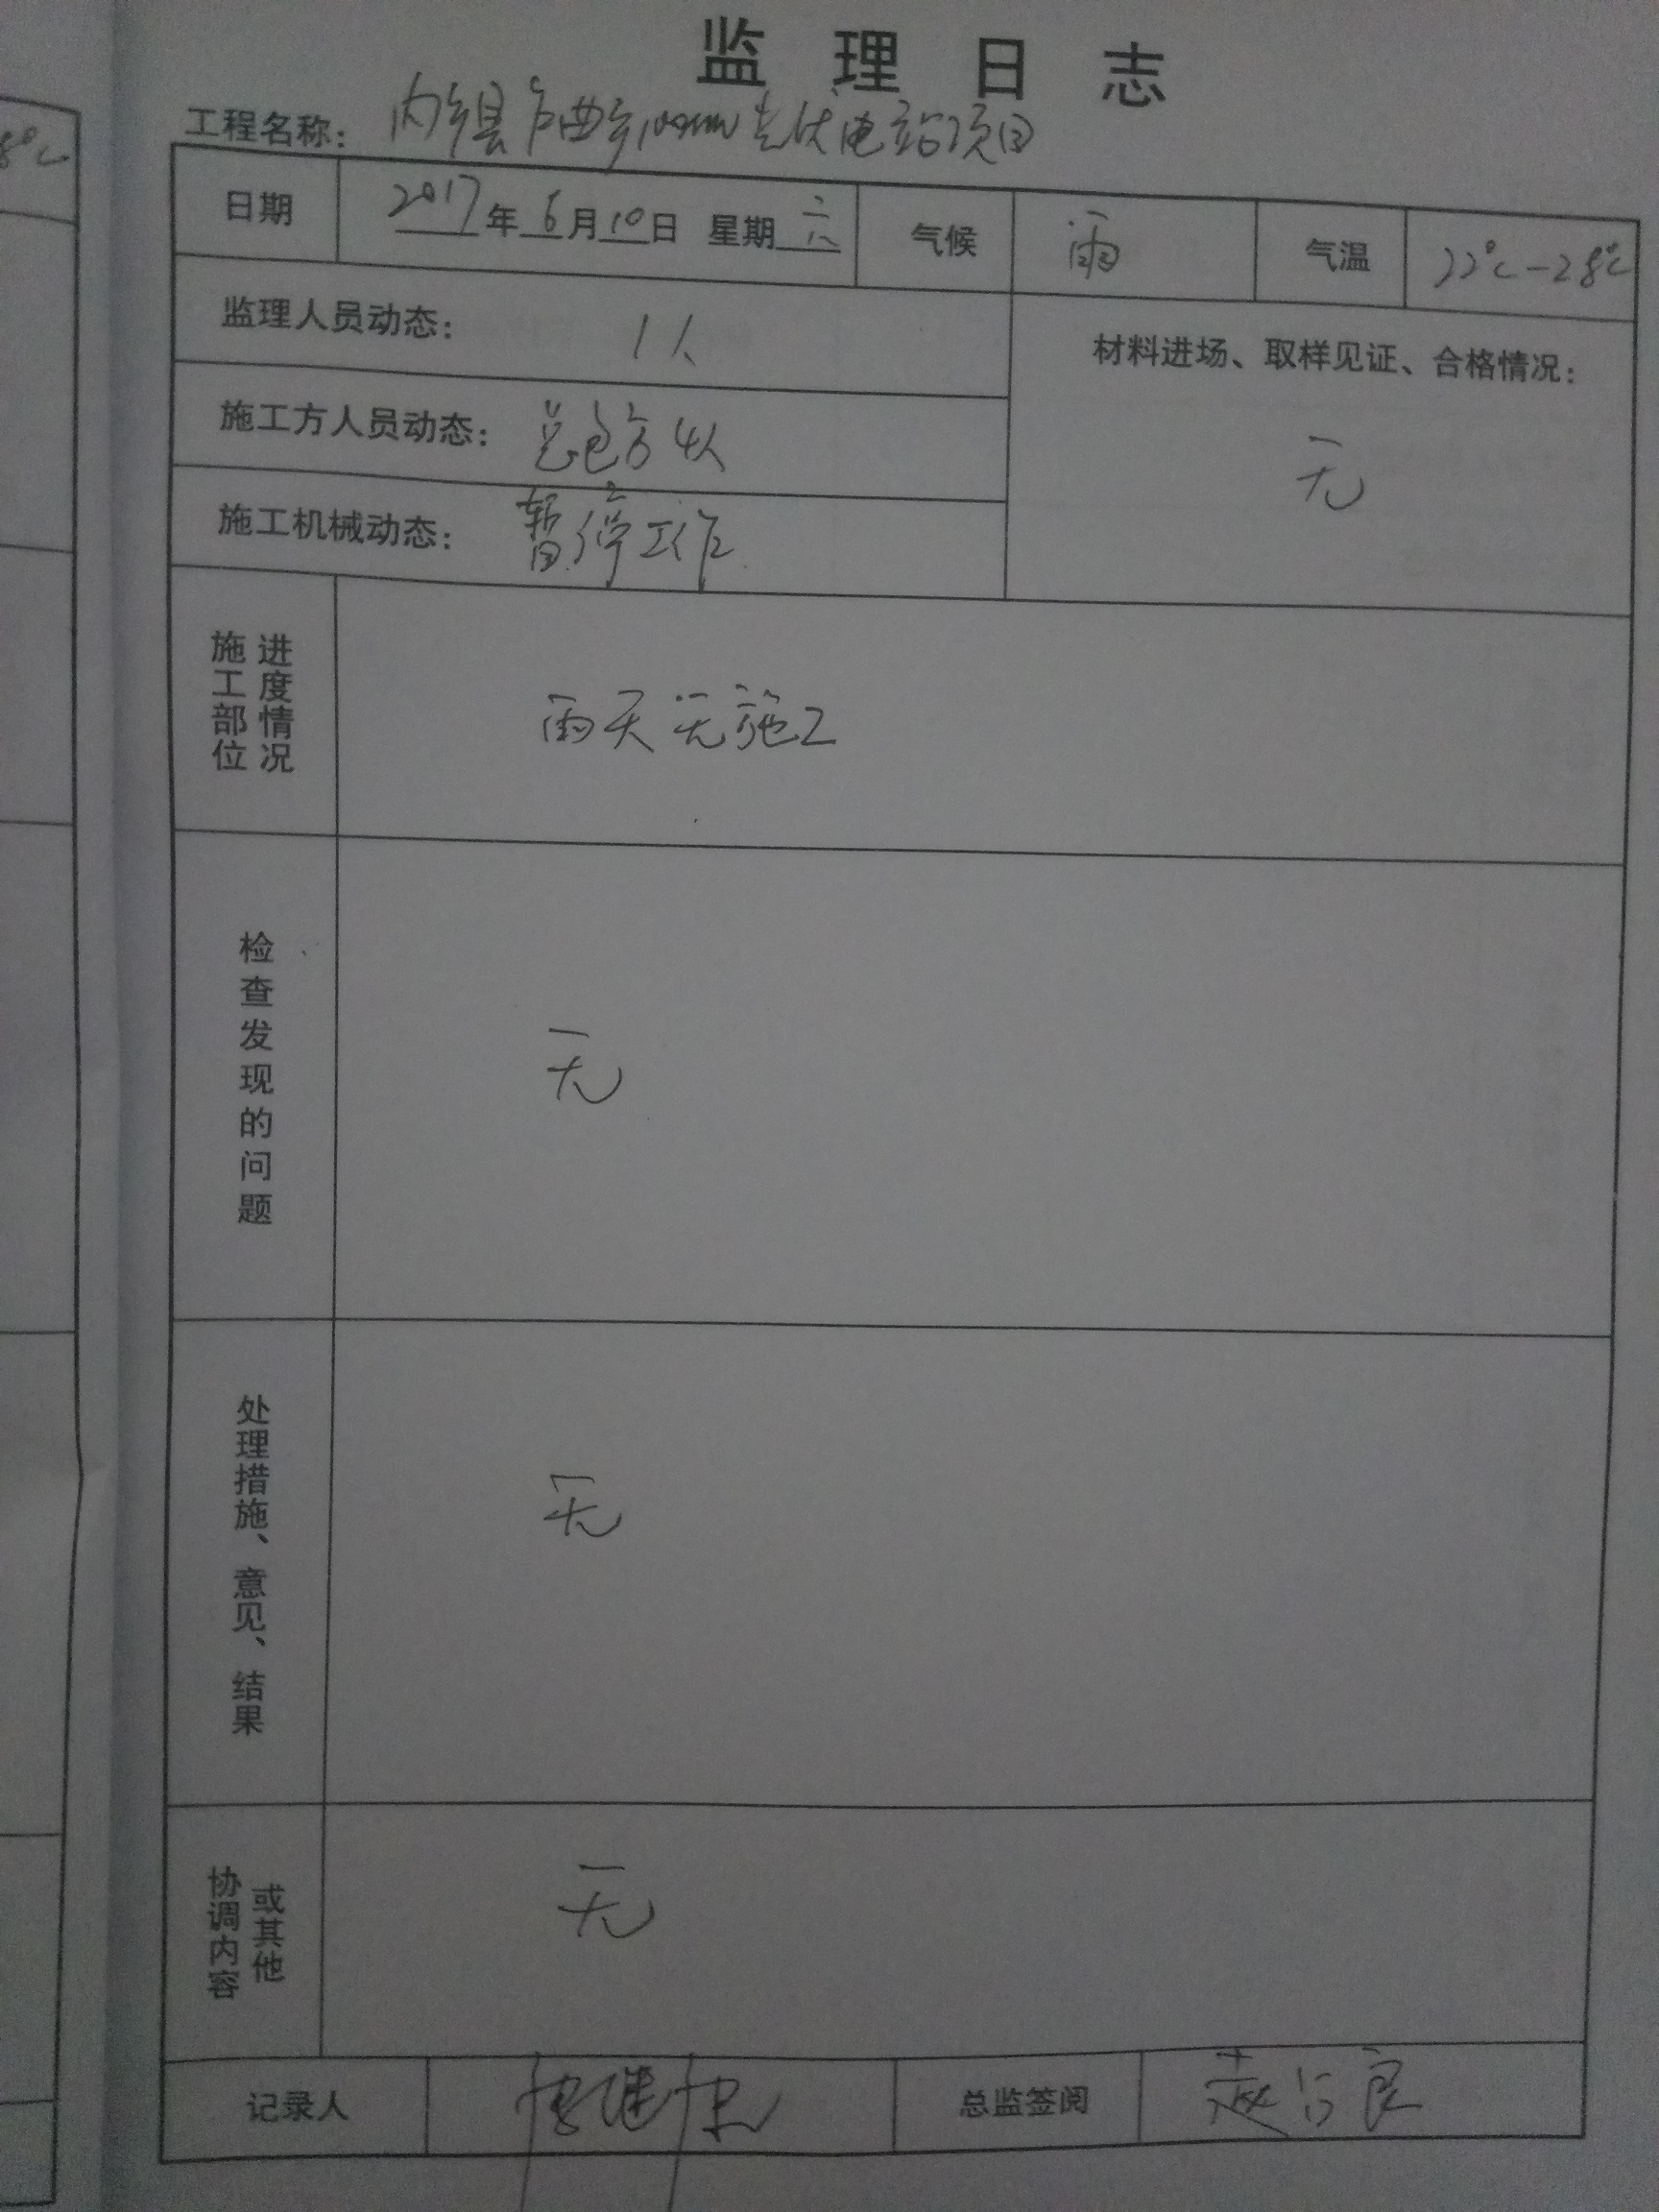 监理日志
工程名称：内乡县卢曲乡100mw光伏电站项目
8℃
日期 2017年6月10日 星期六 气候 雨 气温 22℃-28℃
监理人员动态：1人
材料进场、取样见证、合格情况：
无
施工方人员动态：总包方4人
施工机械动态：暂停工作
施工部位进度情况
雨天无施工
检查发现的问题
无
处理措施、意见、结果
无
协调内容或其他
无
记录人 总监签阅